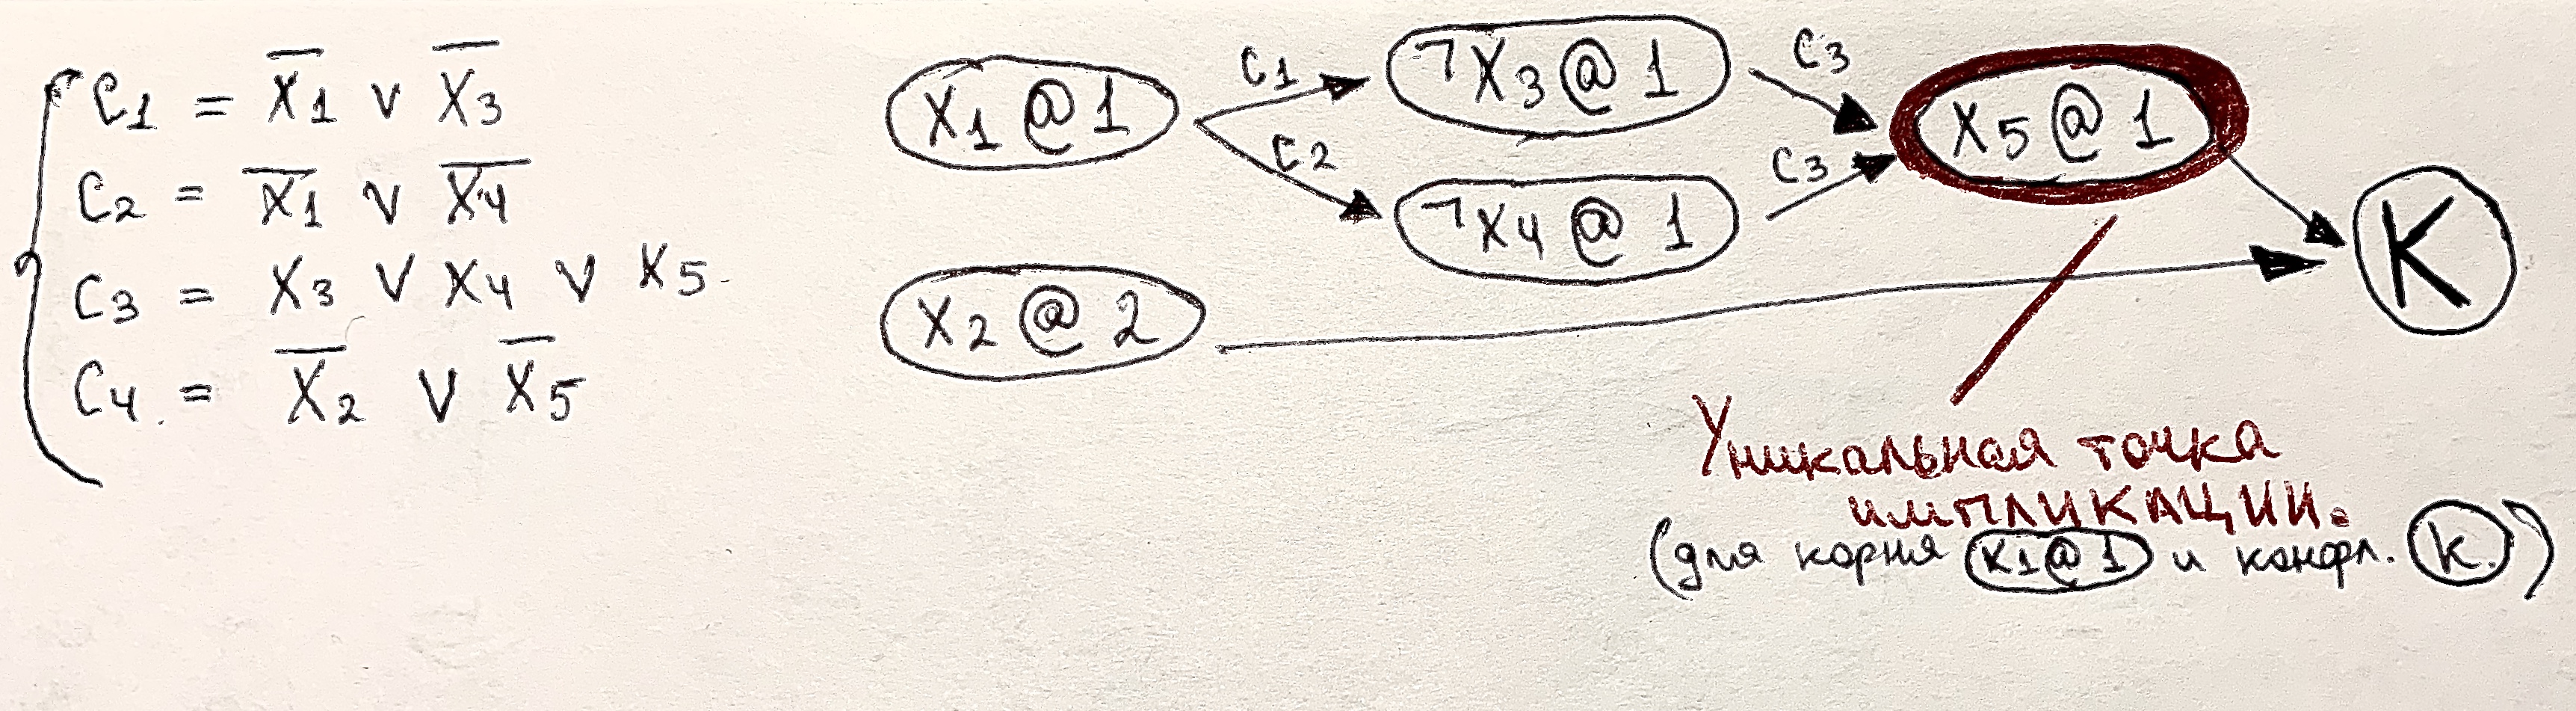 C1 = X̅1 ∨ X̅3
C2 = X̅1 ∨ X̅4
C3 = X3 ∨ X4 ∨ X5
C4 = X̅2 ∨ X̅5
X1 @ 1
C1
¬X3 @ 1
C3
X5 @ 1
C2
¬X4 @ 1
C3
X2 @ 2
K
Уникальная точка
импликации.
(для корня X1@1 и конфл. K.)